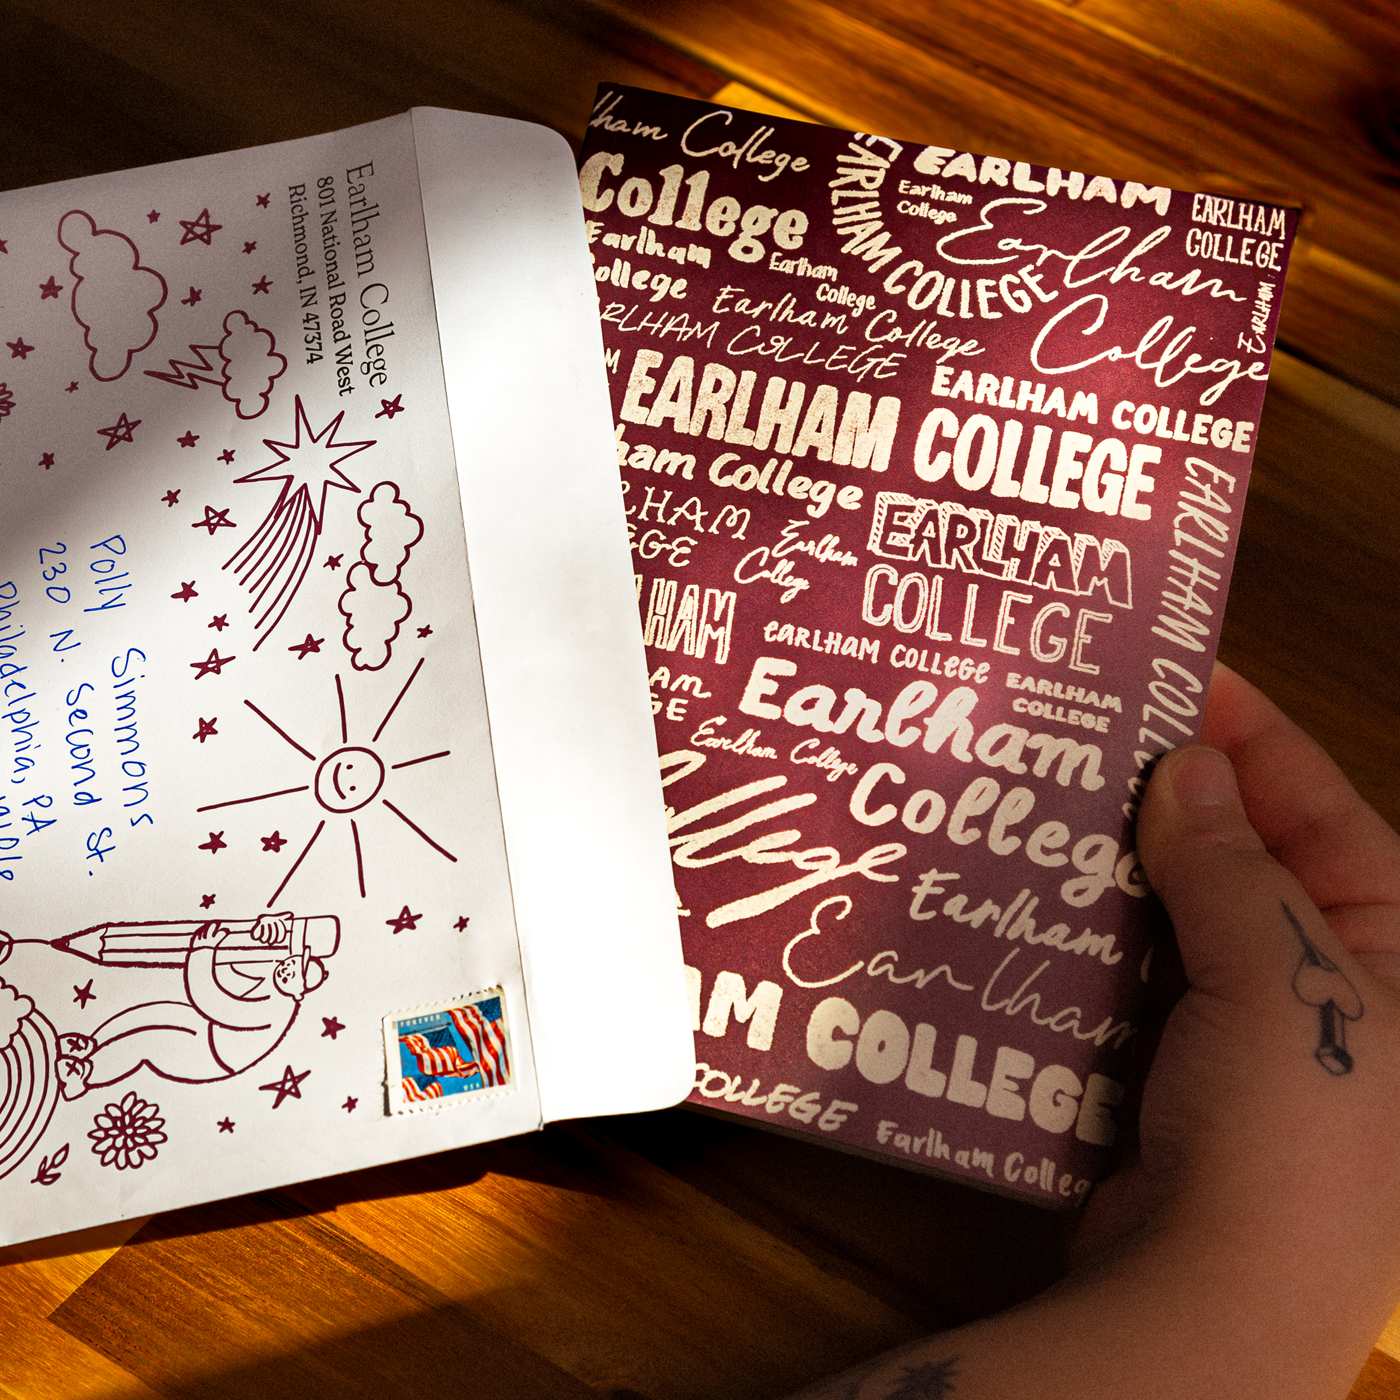 Earlham College
801 National Road West
Richmond, IN 47374
Polly Simmons
230 N. Second St.
Philadelphia, PA
FOREVER
USA
lham College
College
Earlham
College
Earlham
College
EARLHAM COLLEGE
EARLHAM
Earlham
College
Earlham
College
EARLHAM
COLLEGE
EARLHAM
Earlham College
RLHAM COLLEGE
EARLHAM COLLEGE
EARLHAM COLLEGE
ham College
EARLHAM COLLEGE
RLHAM
EGE
Earlham
College
EARLHAM
COLLEGE
LHAM
EARLHAM COLLEGE
EARLHAM
COLLEGE
AM
GE
Earlham
College
Earlham College
ollege
Earlham
Earlham
AM COLLEGE
COLLEGE
Earlham Colleg